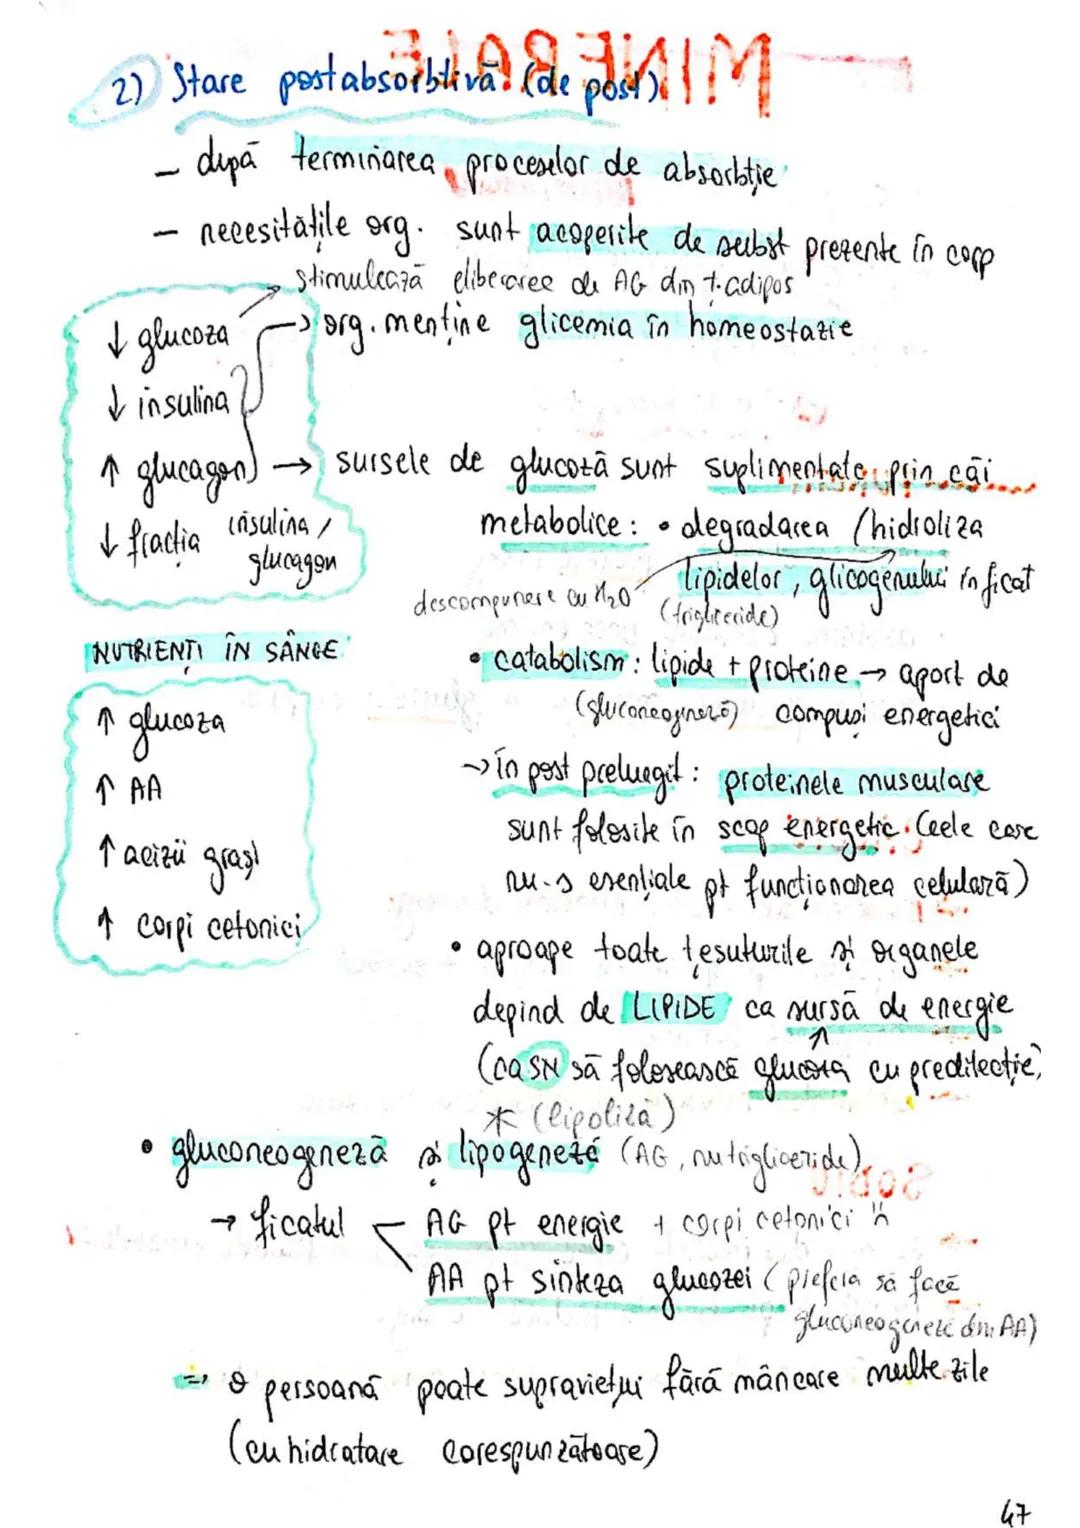 2) Stare postabsorbtivă (de post)
MINERALE
- după terminarea proceselor de absorbție
- necesitățile org. sunt acoperite de subst prezente în corp
stimulează eliberarea de AG din ț. adipos
↓ glucoza
→ org. menține glicemia în homeostazie
↓ insulina
↑ glucagon → sursele de glucoză sunt suplimentate prin căi
metabolice: • degradarea / hidroliza
↓ fracția insulina / glucagon
lipidelor, glicogenului în ficat
descompunere cu H₂O
(trigliceride)
NUTRIENȚI ÎN SÂNGE
• catabolism: lipide + proteine → aport de
(gluconeogeneză) compuși energetici
↑ glucoza
↑ AA
↑ acizii grași
↑ corpi cetonici
→ în post prelungit: proteinele musculare
sunt folosite în scop energetic (cele care
nu-s esențiale pt funcționarea celulară)
• aproape toate țesuturile și organele
depind de LIPIDE ca sursă de energie
(ca SN să folosească glucoza cu predilecție)
* (lipoliza)
• gluconeogeneză și lipogeneză (AG, nu trigliceride)
SODIU
→ ficatul AG pt energie + corpi cetonici
AA pt sinteza glucozei (prefera să facă
gluconeogeneze din AA)
=> o persoană poate supraviețui fără mâncare multe zile
(cu hidratare corespunzătoare)
47